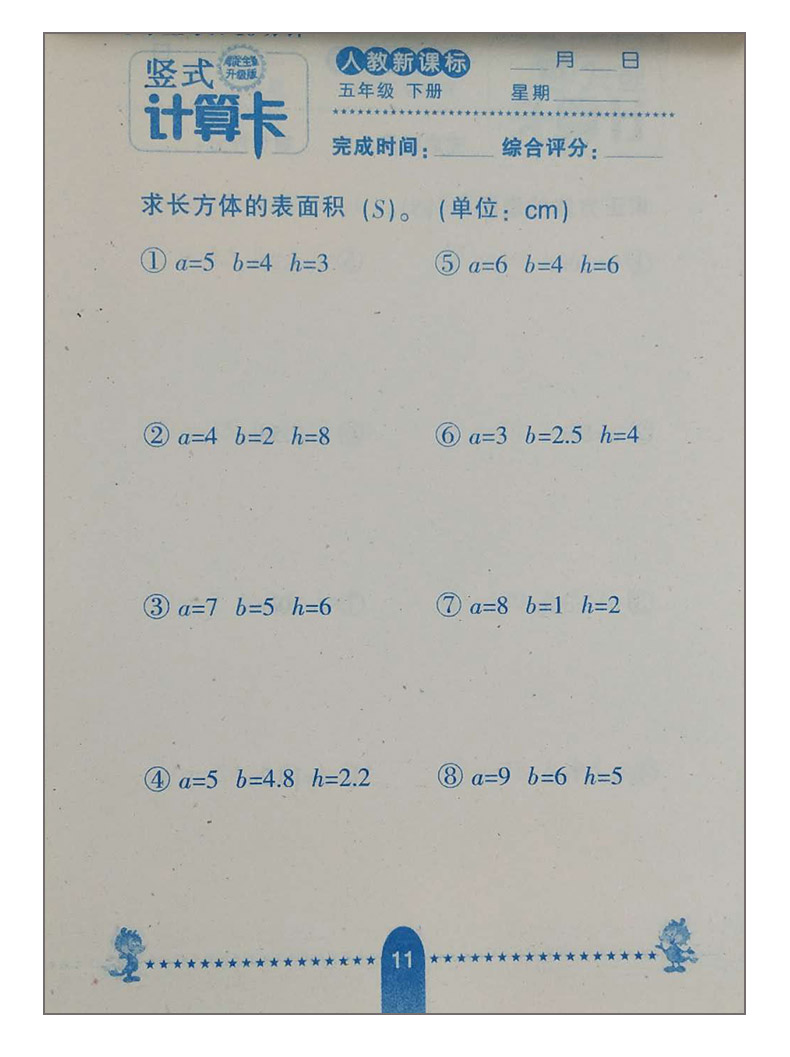 竖式
升级版
计算卡
人教新课标
五年级 下册
___月___日
星期________
完成时间：_____ 综合评分：_____
求长方体的表面积（S）。（单位：cm）
① a=5 b=4 h=3
② a=4 b=2 h=8
③ a=7 b=5 h=6
④ a=5 b=4.8 h=2.2
⑤ a=6 b=4 h=6
⑥ a=3 b=2.5 h=4
⑦ a=8 b=1 h=2
⑧ a=9 b=6 h=5
11